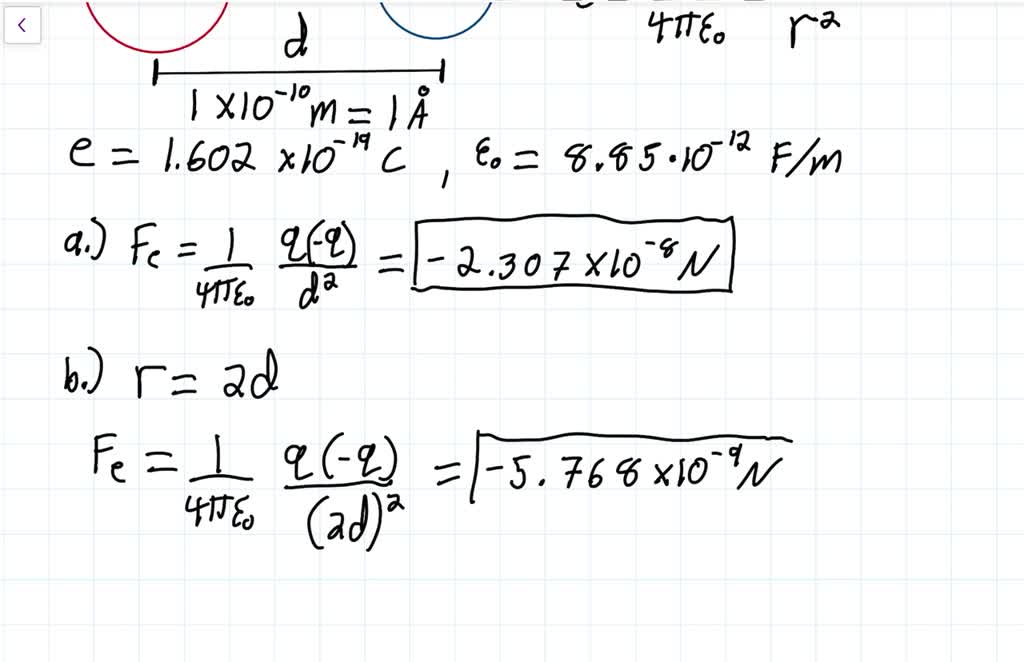 4πε₀ r²
d
1 ×10⁻¹⁰ m = 1 Å
e = 1.602 ×10⁻¹⁹ C , ε₀ = 8.85·10⁻¹² F/m
a.) Fe = 1/4πε₀ q(-q)/d² = -2.307 ×10⁻⁸ N
b.) r = 2d
Fe = 1/4πε₀ q(-q)/(2d)² = -5.768 ×10⁻⁹ N